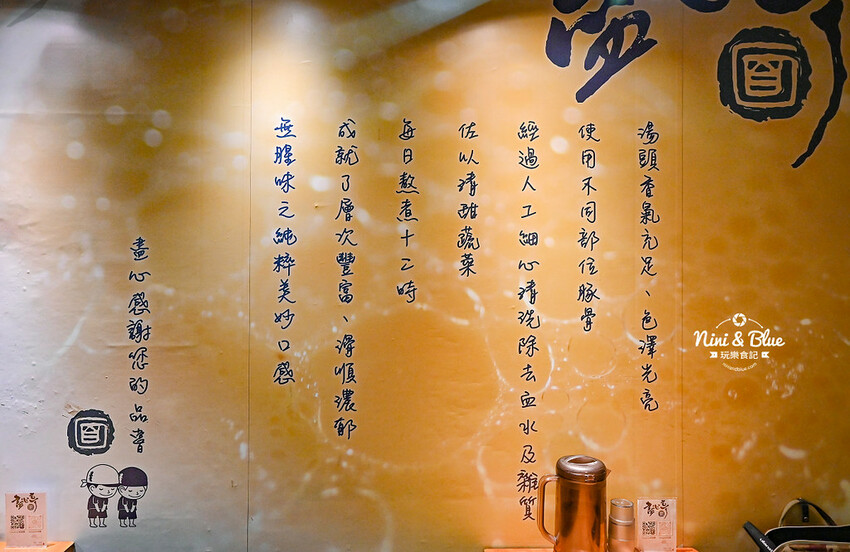 湯頭香氣充足、色澤光亮
使用不同部位豚骨
經過人工細心清洗除去血水及雜質
佐以清甜蔬菜
每日熬煮十二時
成就了層次豐富、滑順濃郁
無腥味之純粹美妙口感
盡心感謝您的品嘗
Nini & Blue
玩樂食記